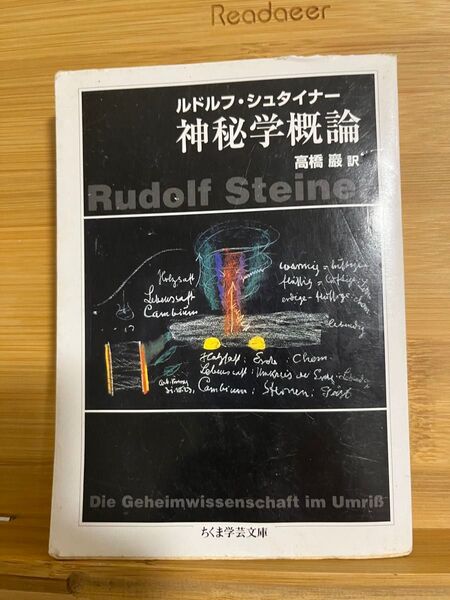 Readaeer
ルドルフ・シュタイナー
神秘学概論
高橋 巖 訳
Rudolf Steiner
Holzsaft
Lebenssaft
Cambium
Holzsaft : Erde : Chem
Lebenssaft : Umkreis der Erde
Cambium : Sternen
Die Geheimwissenschaft im Umriß
ちくま学芸文庫